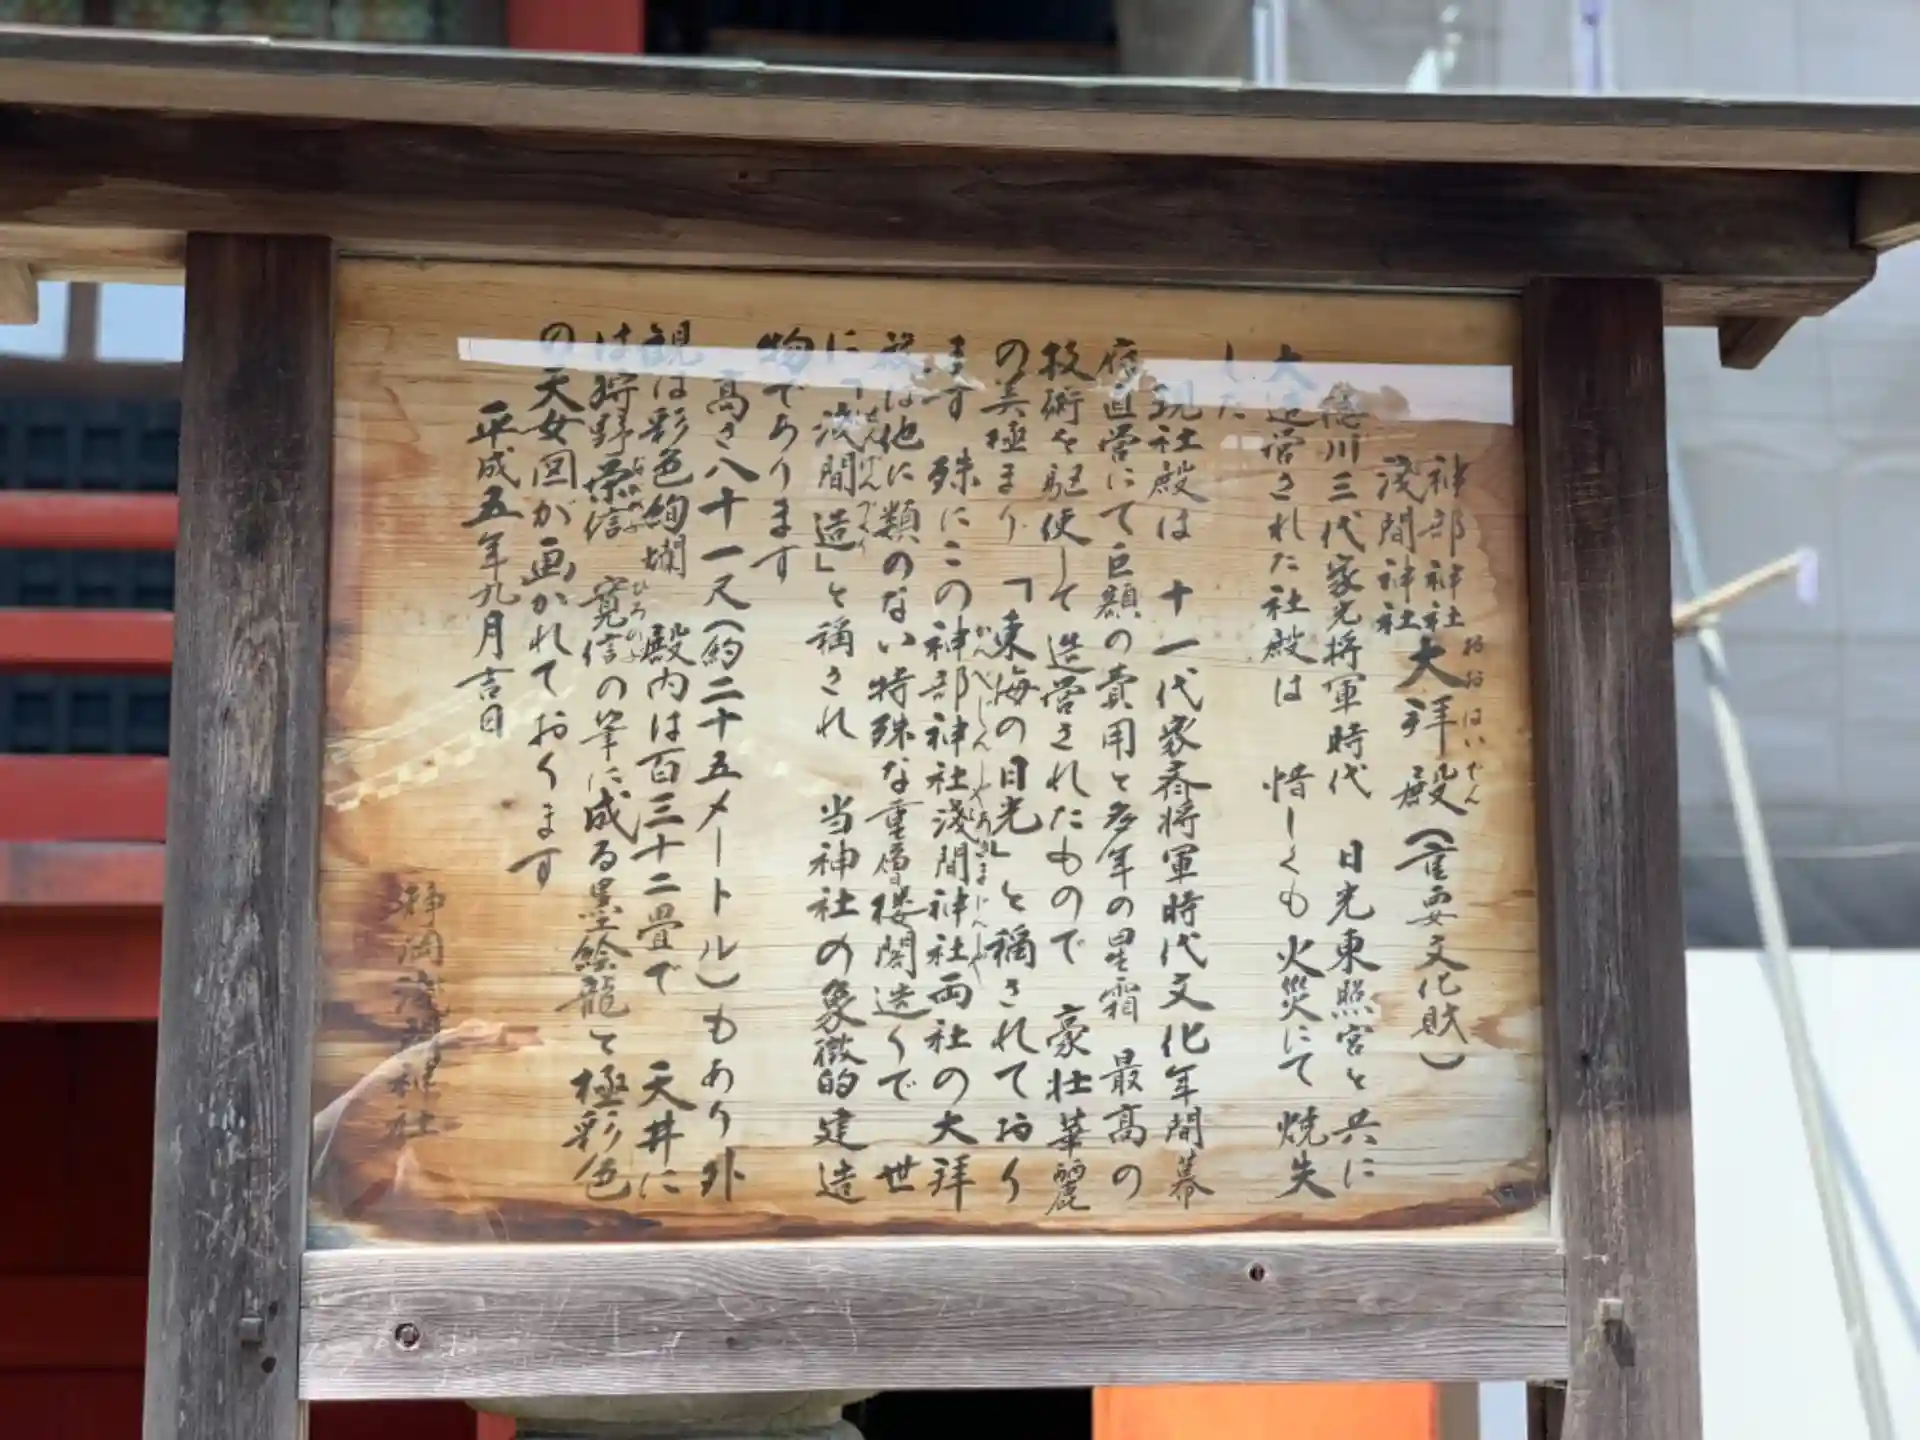 神部神社
浅間神社
大拝殿(重要文化財)
おおはいでん
徳川三代家光将軍時代 日光東照宮と共に
大造営された社殿は 惜しくも火災にて焼失
した
現社殿は 十一代家斉将軍時代文化年間幕
府直営にて巨額の費用と多年の星霜 最高の
技術を駆使して造営されたもので 豪壮華麗
の美極まり 「東海の日光」と稱されており
ます 殊にこの神部神社浅間神社両社の大拝
かんべじんじゃせんげんじんじゃ
殿は他に類のない特殊な重層楼閣造りで 世
に「浅間造」と稱され 当神社の象徴的建造
せんげんづくり
物であります
高さ八十一尺(約二十五メートル)もあり外
観は彩色絢爛 殿内は百三十二畳で 天井に
は狩野榮信 寛信の筆に成る墨絵龍と極彩色
ひろのぶ
の天女図が画かれております
平成五年九月吉日
静岡浅間神社